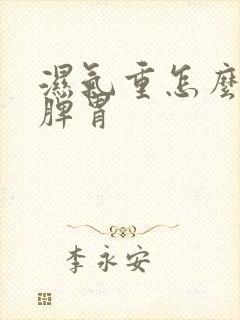 濕氣重怎麼
脾胃
李永安